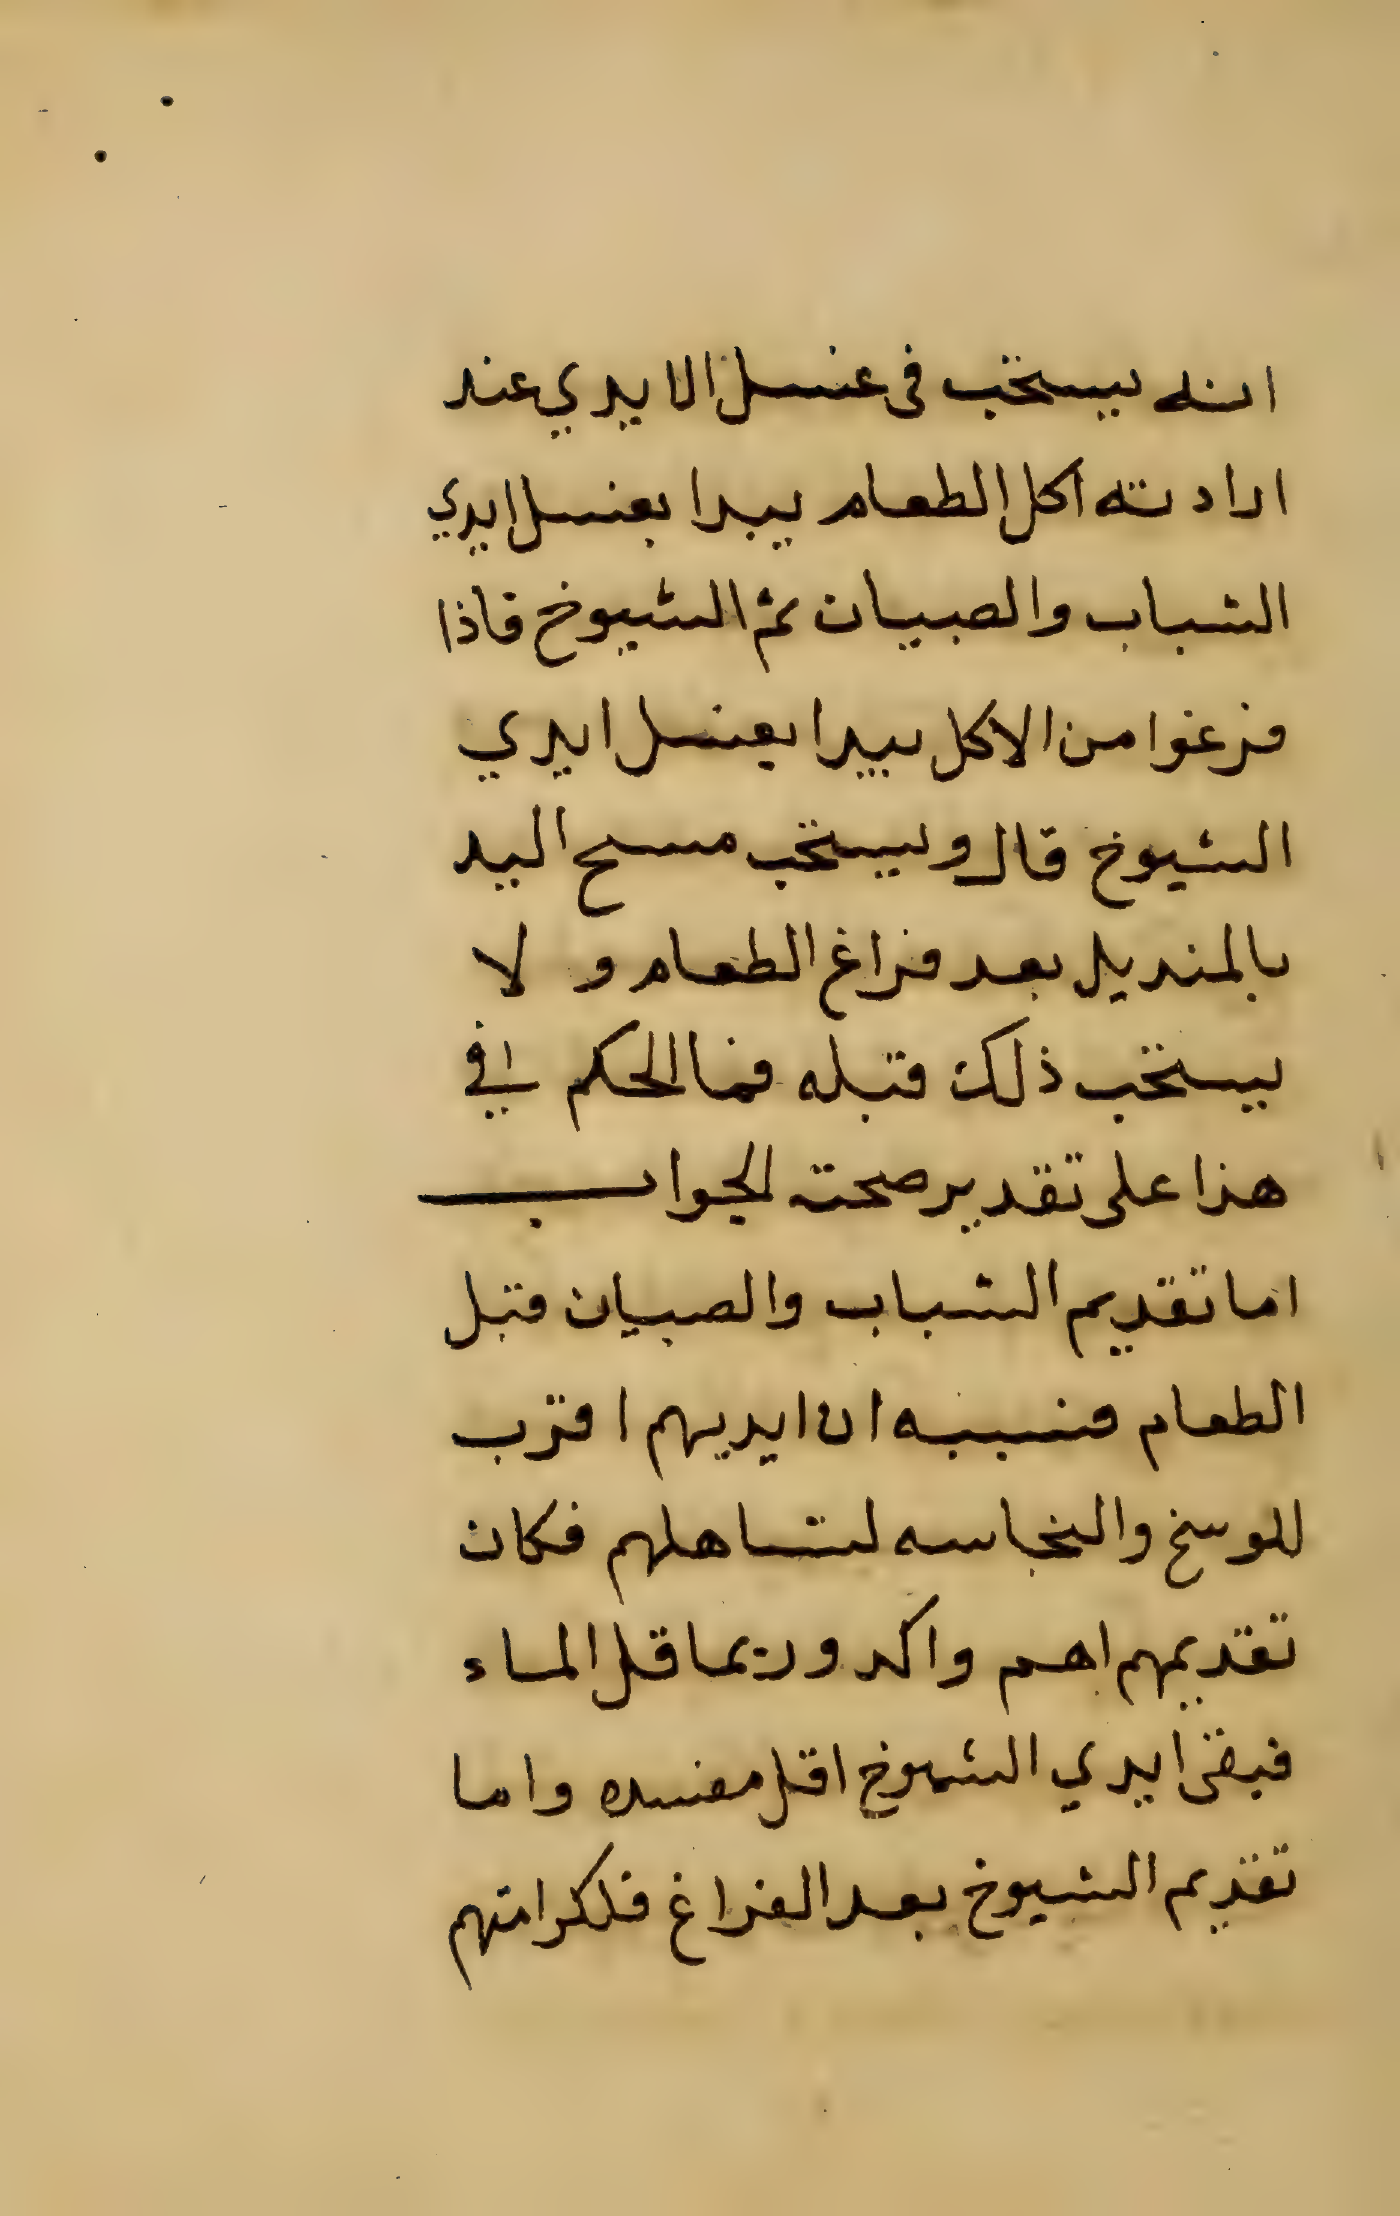 انه يستحب في غسل الايدي عند
ارادته اكل الطعام يبدا بغسل ايدي
الشباب والصبيان ثم الشيوخ فاذا
فرغوا من الاكل يبدا بغسل ايدي
الشيوخ قال ويستحب مسح اليد
بالمنديل بعد فراغ الطعام و لا
يستحب ذلك قبله فما الحكم في
هذا على تقدير صحته الجواب
اما تقديم الشباب والصبيان قبل
الطعام فسببه ان ايديهم اقرب
للوسخ والنجاسه لتساهلهم فكان
تقديمهم اهم واكد وربما قل الماء
فبقى ايدي الشيوخ اقل مفسده واما
تقديم الشيوخ بعد الفراغ فلكرامتهم